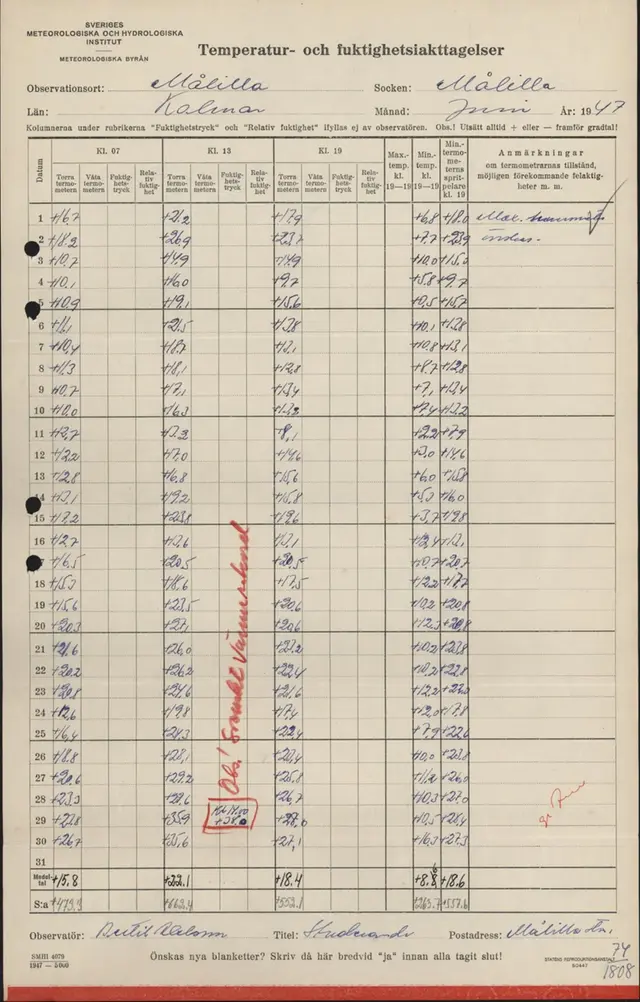 SVERIGES
METEOROLOGISKA OCH HYDROLOGISKA
INSTITUT
METEOROLOGISKA BYRÅN
Temperatur- och fuktighetsiakttagelser
Observationsort: Målilla Socken: Målilla
Län: Kalmar Månad: Juni År: 1947
Kolumnerna under rubrikerna "Fuktighetstryck" och "Relativ fuktighet" ifyllas ej av observatören. Obs.! Utsätt alltid + eller — framför gradtal!
Datum Kl. 07 Kl. 13 Kl. 19 Max.-temp. kl. 19—19 Min.-temp. kl. 19—19 Min.-termometerns spritpelare kl. 19 Anmärkningar om termometrarnas tillstånd, möjligen förekommande felaktigheter m. m.
Torra termometern Våta termometern Fuktighetstryck Relativ fuktighet Torra termometern Våta termometern Fuktighetstryck Relativ fuktighet Torra termometern Våta termometern Fuktighetstryck Relativ fuktighet
1 +16,7 +21,2 +17,9 +6,8 +18,0 Max.
2 +18,2 +26,9 +23,7 +7,7 +23,9
3 +10,7 +14,9 +14,9 +10,0 +15,0
4 +10,1 +16,0 +9,7 +5,8 +9,7
5 +10,9 +19,1 +15,6 +0,5 +15,7
6 +11,1 +21,5 +13,8 +10,1 +13,8
7 +10,4 +18,7 +13,1 +10,8 +13,1
8 +11,3 +18,1 +12,8 +8,7 +12,8
9 +10,7 +17,1 +13,4 +7,1 +13,4
10 +10,0 +16,3 +13,2 +7,4 +13,2
11 +12,7 +13,3 +8,1 +2,2 +7,9
12 +12,2 +17,0 +14,6 +3,0 +14,6
13 +12,8 +16,8 +15,6 +6,0 +15,8
14 +13,1 +19,2 +15,8 +5,3 +16,0
15 +17,2 +23,8 +19,6 +3,7 +19,8
16 +12,7 +13,6 +13,1 +12,4 +13,1
17 +16,5 +20,5 +20,5 +10,7 +20,7
18 +15,3 +18,6 +17,5 +12,2 +17,7
19 +15,6 +23,5 +20,6 +10,2 +20,8
20 +20,3 +27,1 +20,6 +12,3 +20,8
21 +21,6 +26,0 +23,2 +10,2 +23,8
22 +20,2 +26,2 +22,4 +10,2 +22,8
23 +20,8 +24,6 +21,6 +12,2 +22,0
24 +12,6 +19,8 +17,4 +12,0 +17,8
25 +16,4 +24,3 +22,4 +7,9 +22,6
26 +18,8 +28,1 +23,4 +10,0 +23,8
27 +20,6 +29,2 +25,8 +11,2 +26,0
28 +23,3 +29,6 +26,7 +10,3 +27,0
29 +27,8 +35,9 kl 14.00 +38,0 +27,0 +10,5 +28,4
30 +26,7 +35,6 +27,1 +16,3 +27,3
31
Medeltal +15,8 +22,1 +18,4 +8,8 +18,6
S:a +473,3 +662,4 +552,1 +263,7 +557,6
Obs! Svenskt Värmerekord
Observatör: Bertil Titel: Studerande Postadress: Målilla
SMHI 4079
1947 — 5000
Önskas nya blanketter? Skriv då här bredvid "ja" innan alla tagit slut!
STATENS REPRODUKTIONSANSTALT
74
1808